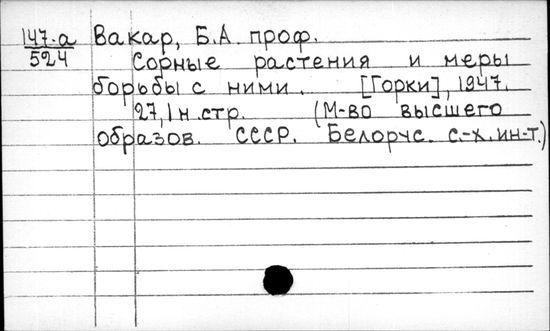 147-а Вакар, Б.А. проф.
524 Сорные растения и меры
борьбы с ними. [Горки], 1947.
27, 1 н.стр. (М-во высшего
образов. СССР. Белорус. с.-х. ин-т.)